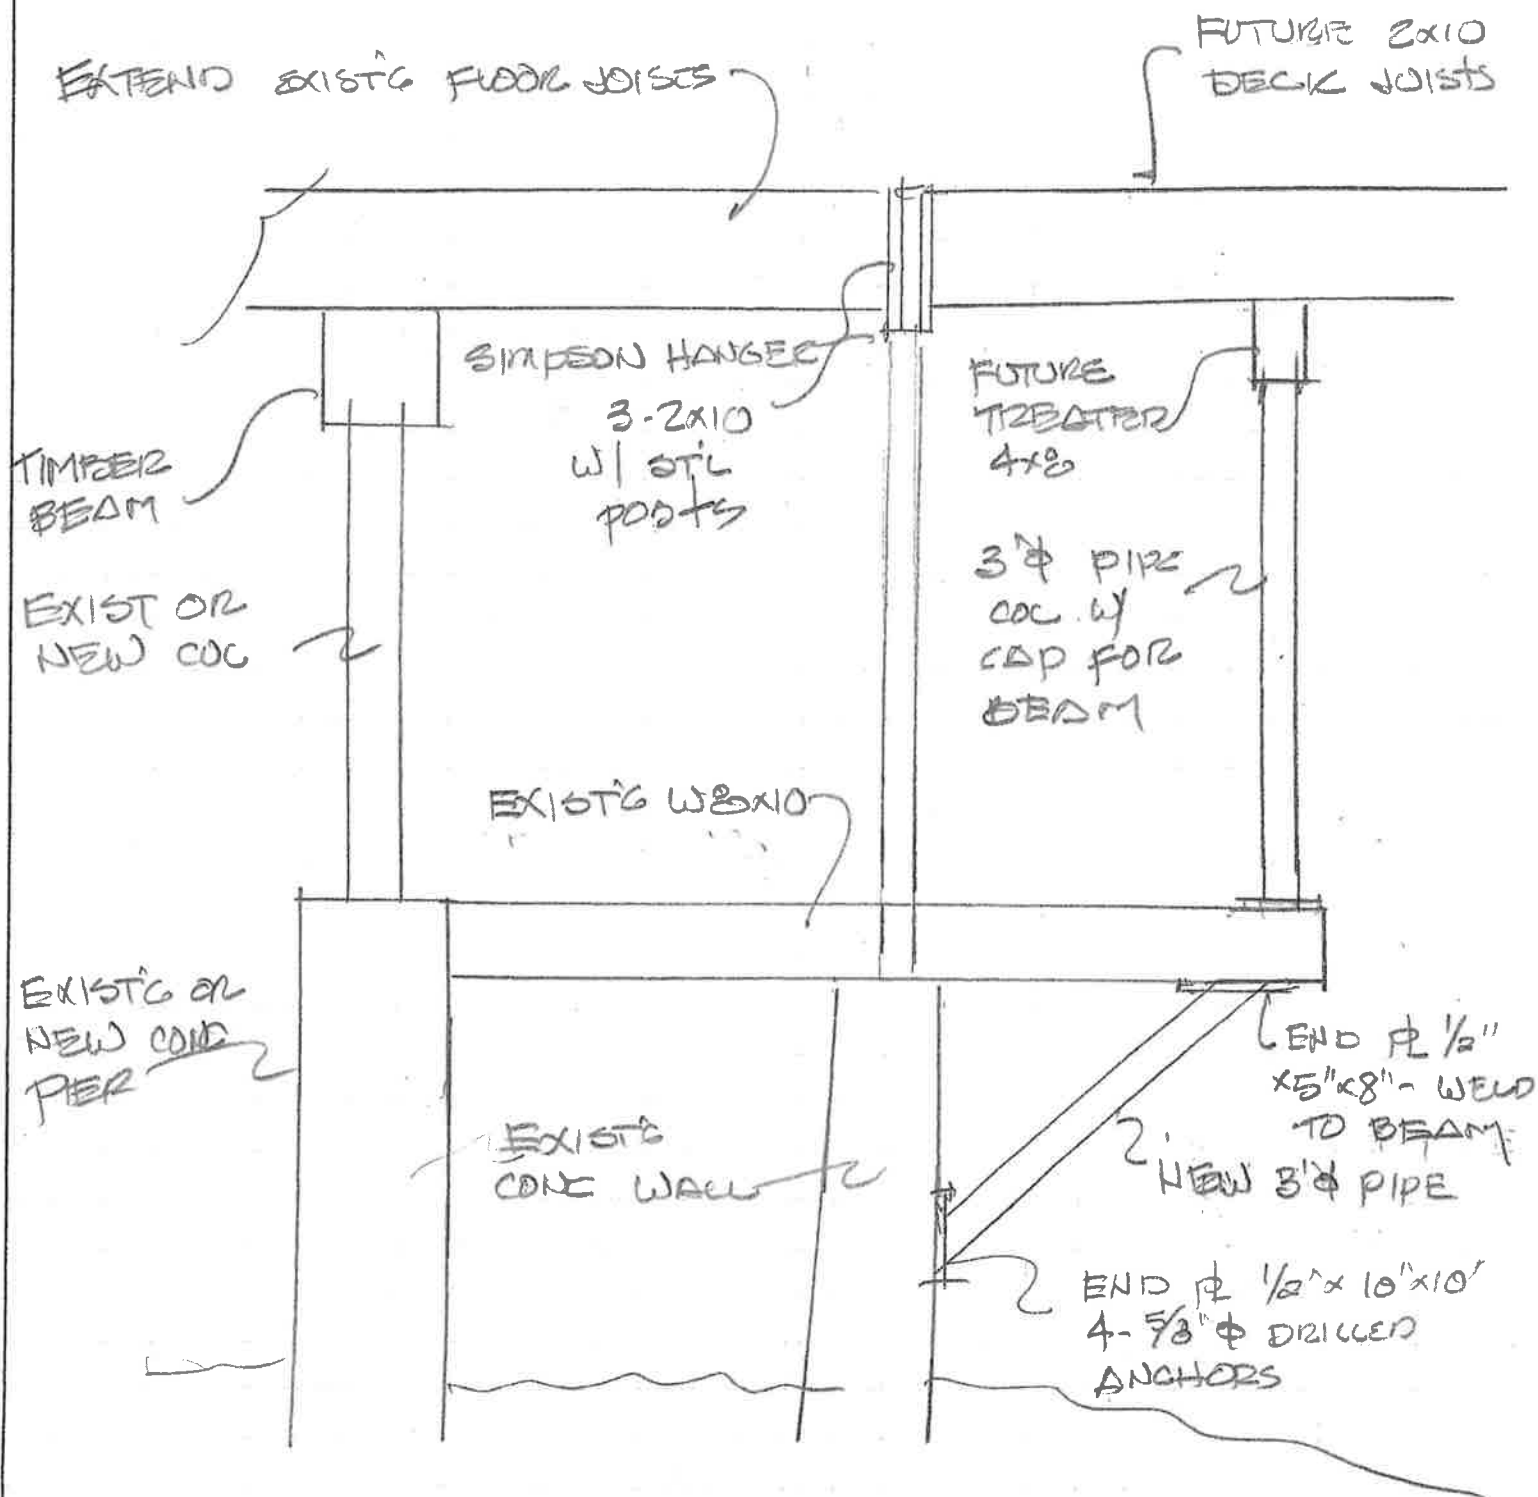 EXTEND EXIST'G FLOOR JOISTS
FUTURE 2x10
DECK JOISTS
SIMPSON HANGER
3-2x10
W/ STL
POSTS
FUTURE
TREATED
4x8
TIMBER
BEAM
EXIST OR
NEW COL
3"φ PIPE
COL. W/
CAP FOR
BEAM
EXIST'G W8x10
EXIST'G OR
NEW CONC
PIER
EXIST'G
CONC WALL
END ℄ 1/2"
x5"x8" - WELD
TO BEAM.
NEW 3"φ PIPE
END ℄ 1/2"x 10"x10"
4- 5/8"φ DRILLED
ANCHORS